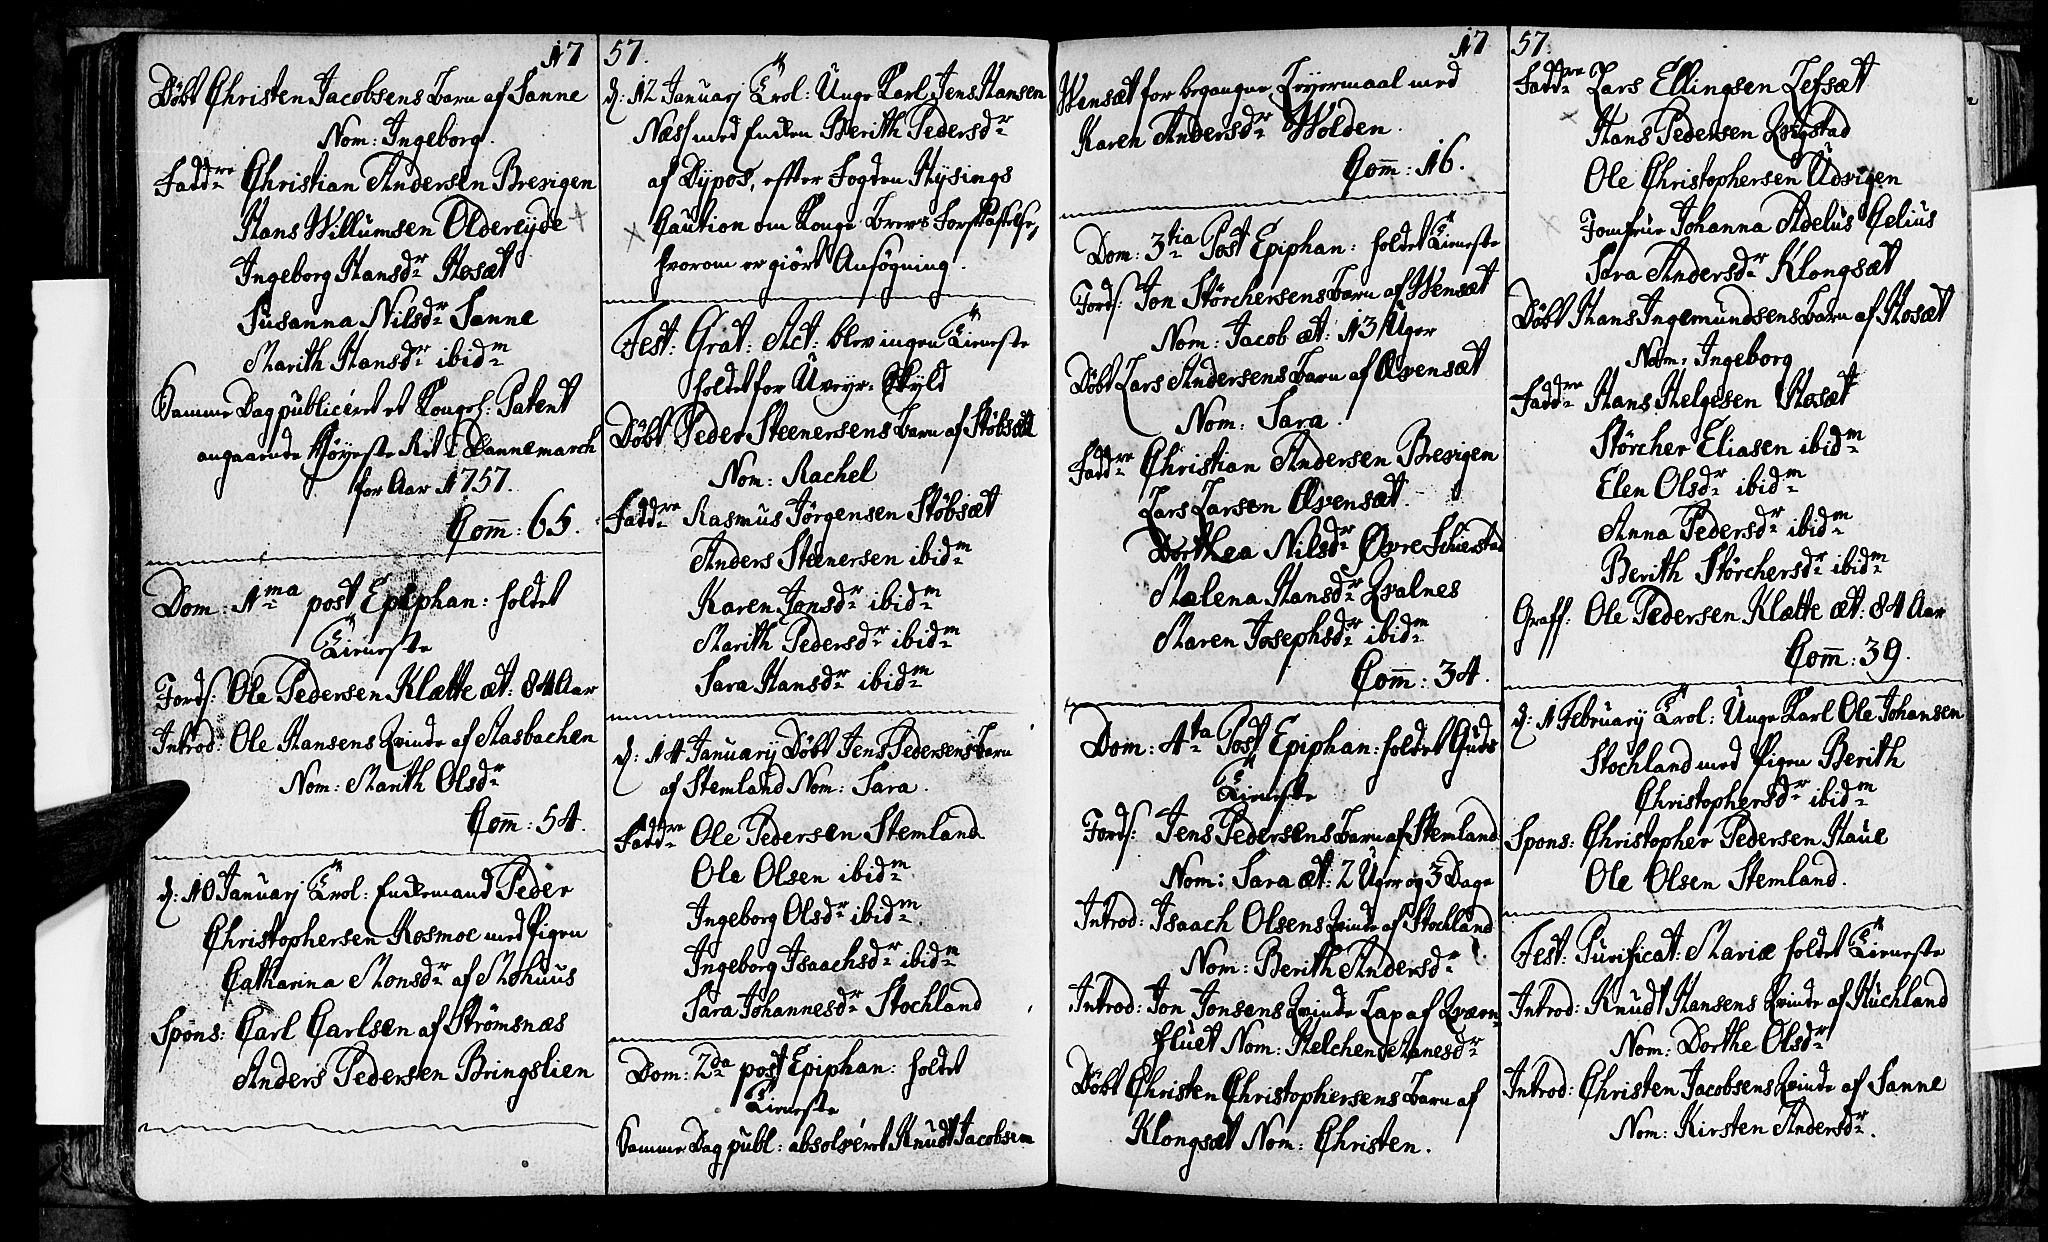 17
Döbt Christen Jacobsens Barn af Sanne
Nom: Ingeborg.
Fadd:re Christian Andersen Brevigen
Hans Willumsen Oldereyde
Ingeborg Hansd:r Hosæt
Susanna Nilsd:r Sanne
Marith Hansd:r ibid:m
Samme Dag publiceret et Kongel: Patent
angaaende Höyeste Ret i Dannemarch
for Aar 1757.
Com̄: 65.
Dom: 1:ma post Epiphan: holdet
Tieneste
Fords: Ole Pedersen Klætte æt: 84 Aar
Introd: Ole Hansens Qvinde af Hasbachen
Nom: Marith Olsd:r
Com̄: 54.
d: 10 Januarj Trol: Enkemand Peder
Christophersen Rosmoe med Pigen
Catharina Monsd:r af Mohuus
Spons: Carl Carlsen af Strömsnæs
Anders Pedersen Bringslien
57.
d: 12 Januarj Trol: Unge Karl Jens Hansen
Næss med Enken Berith Pedersd:r
af Dypos, efter Fogden Hysings
Caution om Konge Brevs Forskaffelse,
hvorom er giört Ansögning.
Fest: Grat: Act: blev ingen Tieneste
holdet for Uveyr Skyld
Döbt Peder Steenersens Barn af Stöbsæt
Nom: Rachel
Fadd:re Rasmus Jörgensen Stöbsæt
Anders Steenersen ibid:m
Karen Jonsd:r ibid:m
Marith Pedersd:r ibid:m
Sara Hansd:r ibid:m
d: 14 Januarij Döbt Jens Pedersens Barn
af Stemland Nom: Sara.
Fadd:re Ole Pedersen Stemland
Ole Olsen ibid:m
Ingeborg Olsd:r ibid:m
Ingeborg Isaachsd:r ibid:m
Sara Johannesd:r Stochland
Dom: 2:da post Epiphan: holdet
Tieneste
Samme Dag publ: absolvéret Knudt Jacobsen
17
Wensæt for begangne Leyermaal med
Karen Andersd:r Wolden.
Com̄: 16.
Dom: 3:tia Post Epiphan: holdet Tieneste
Fords: Jon Störchersens Barn af Wensæt
Nom: Jacob æt: 13 Uger
Döbt Lars Andersens Barn af Qvensæt
Nom: Sara.
Fadd:re Christian Andersen Brevigen
Lars Larsen Qvensæt
Dorthea Nilsd:r Övre Schierstad
Malena Hansd:r Qvalnes
Maren Josephsd:r ibid:m
Com̄: 34.
Dom: 4:ta Post Epiphan: holdet Guds
Tieneste
Fords: Jens Pedersens Barn af Stemland
Nom: Sara æt: 2 Uger og 3 Dage
Introd: Isaach Olsens Qvinde af Stochland
Nom: Berith Andersd:r
Introd: Jon Jonsens Qvinde Lap af Qværn-
fluet Nom: Helchen Manesd:r
Döbt Christen Christophersens Barn af
Klongsæt Nom: Christen.
57.
Fadd:re Lars Ellingsen Lefsæt
Hans Pedersen Qvigstad
Ole Christophersen Udvigen
Jomfrue Johanna Adelus Celius
Sara Andersd:r Klongsæt
Döbt Hans Ingemundsens Barn af Hosæt
Nom: Ingeborg
Fadd:re Hans Helgesen Hosæt
Störcher Eliasen ibid:m
Elen Olsd:r ibid:m
Anna Pedersd:r ibid:m
Berith Störchersd:r ibid:m
Graff: Ole Pedersen Klætte æt: 84 Aar
Com̄: 39.
d: 1 February Trol: Unge Karl Ole Johansen
Stochland med Pigen Berith
Christophersd:r ibid:m
Spons: Christopher Pedersen Haue
Ole Olsen Stemland.
Fest: Purificat: Mariæ holdet Tieneste
Introd: Knudt Hansens Qvinde af Huchland
Nom: Dorthe Olsd:r
Introd: Christen Jacobsens Qvinde af Sanne
Nom: Kirsten Andersd:r.